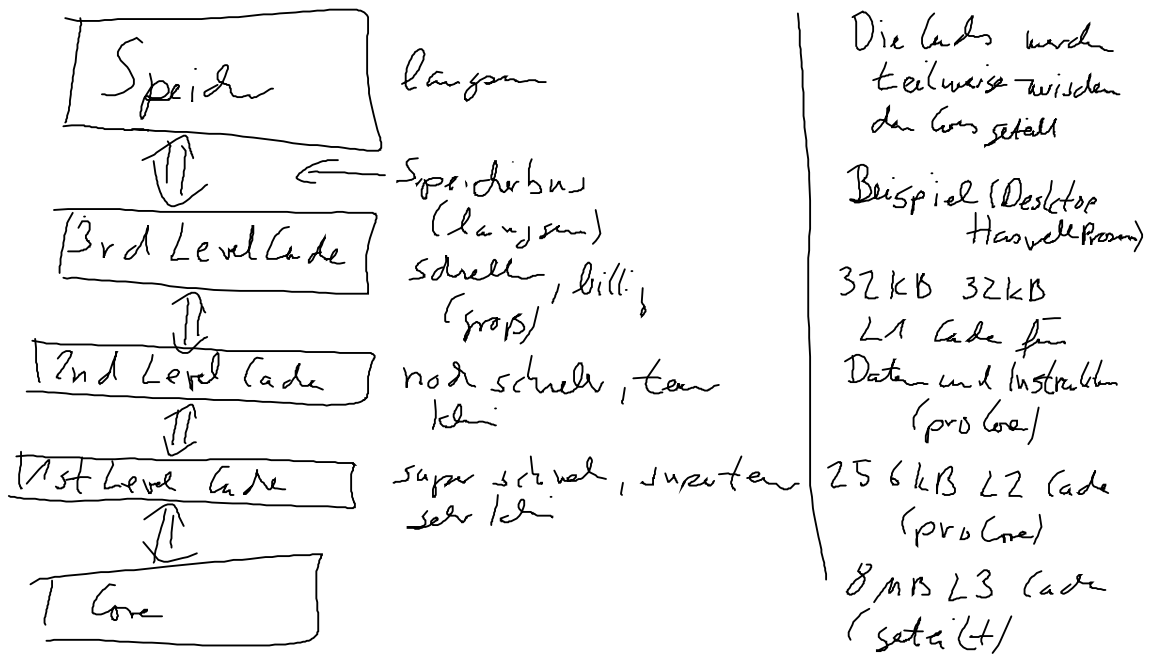 Speicher
langsam
Speicherbus
(langsam)
3rd Level Cache
schneller, billig
(groß)
2nd Level Cache
noch schneller, teuer
klein
1st Level Cache
super schnell, superteuer
sehr klein
Core
Die Caches werden
teilweise zwischen
den Cores geteilt
Beispiel (Desktop
Haswell Prozessor)
32kB 32kB
L1 Cache für
Daten und Instruktion
(pro Core)
256kB L2 Cache
(pro Core)
8 MB L3 Cache
(geteilt)